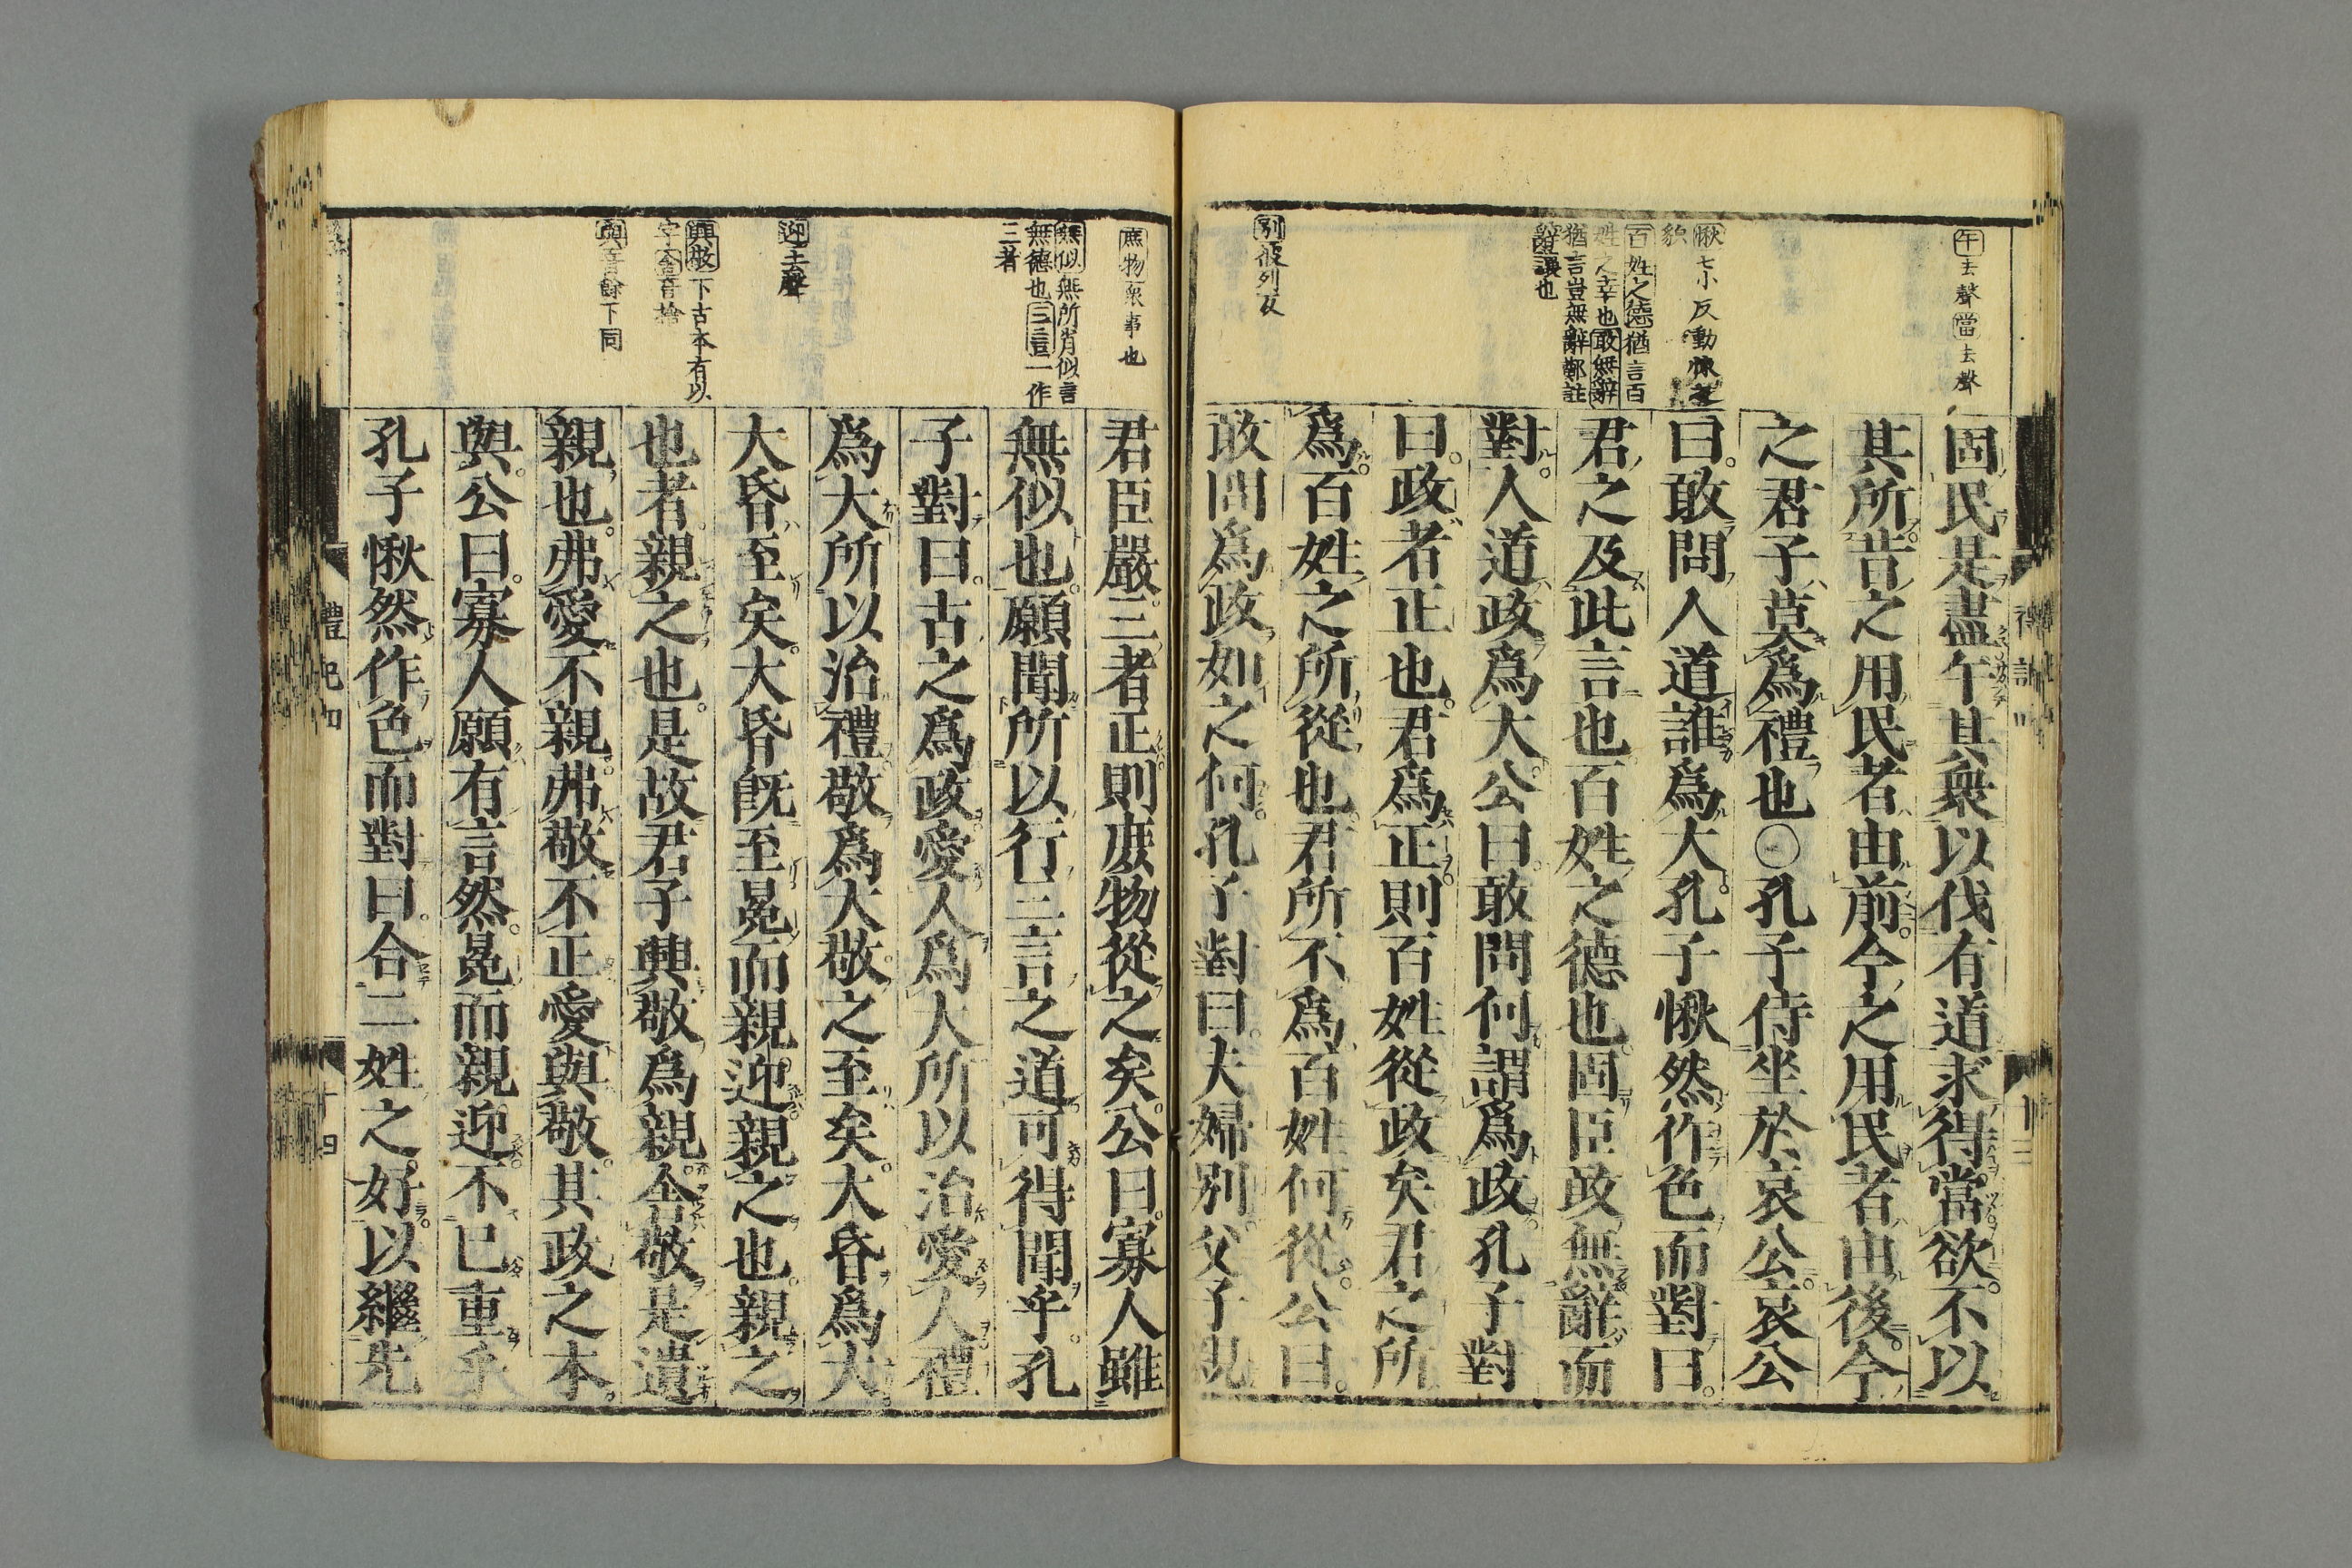 午去聲當去聲
愀七小反動悚之
貌
百姓之德猶言百
姓之幸也敢無辭
猶言豈無辭鄭註
辭讓也
別彼列反
固民是盡午其衆以伐有道求得當欲不以
其所昔之用民者由前今之用民者由後今
之君子莫爲禮也○孔子侍坐於哀公哀公
曰敢問人道誰爲大孔子愀然作色而對曰
君之及此言也百姓之德也固臣敢無辭而
對人道政爲大公曰敢問何謂爲政孔子對
曰政者正也君爲正則百姓從政矣君之所
爲百姓之所從也君所不爲百姓何從公曰
敢問爲政如之何孔子對曰夫婦別父子親
庶物衆事也
無似無所肖似言
無德也三言一作
三者
迎去聲
興敬下古本有以
字舍音捨
與音餘下同
君臣嚴三者正則庶物從之矣公曰寡人雖
無似也願聞所以行三言之道可得聞乎孔
子對曰古之爲政愛人爲大所以治愛人禮
爲大所以治禮敬爲大敬之至矣大昏爲大
大昏至矣大昏既至冕而親迎親之也親之
也者親之也是故君子興敬爲親舍敬是遺
親也弗愛不親弗敬不正愛與敬其政之本
與公曰寡人願有言然冕而親迎不已重乎
孔子愀然作色而對曰合二姓之好以繼先
禮記四
十四